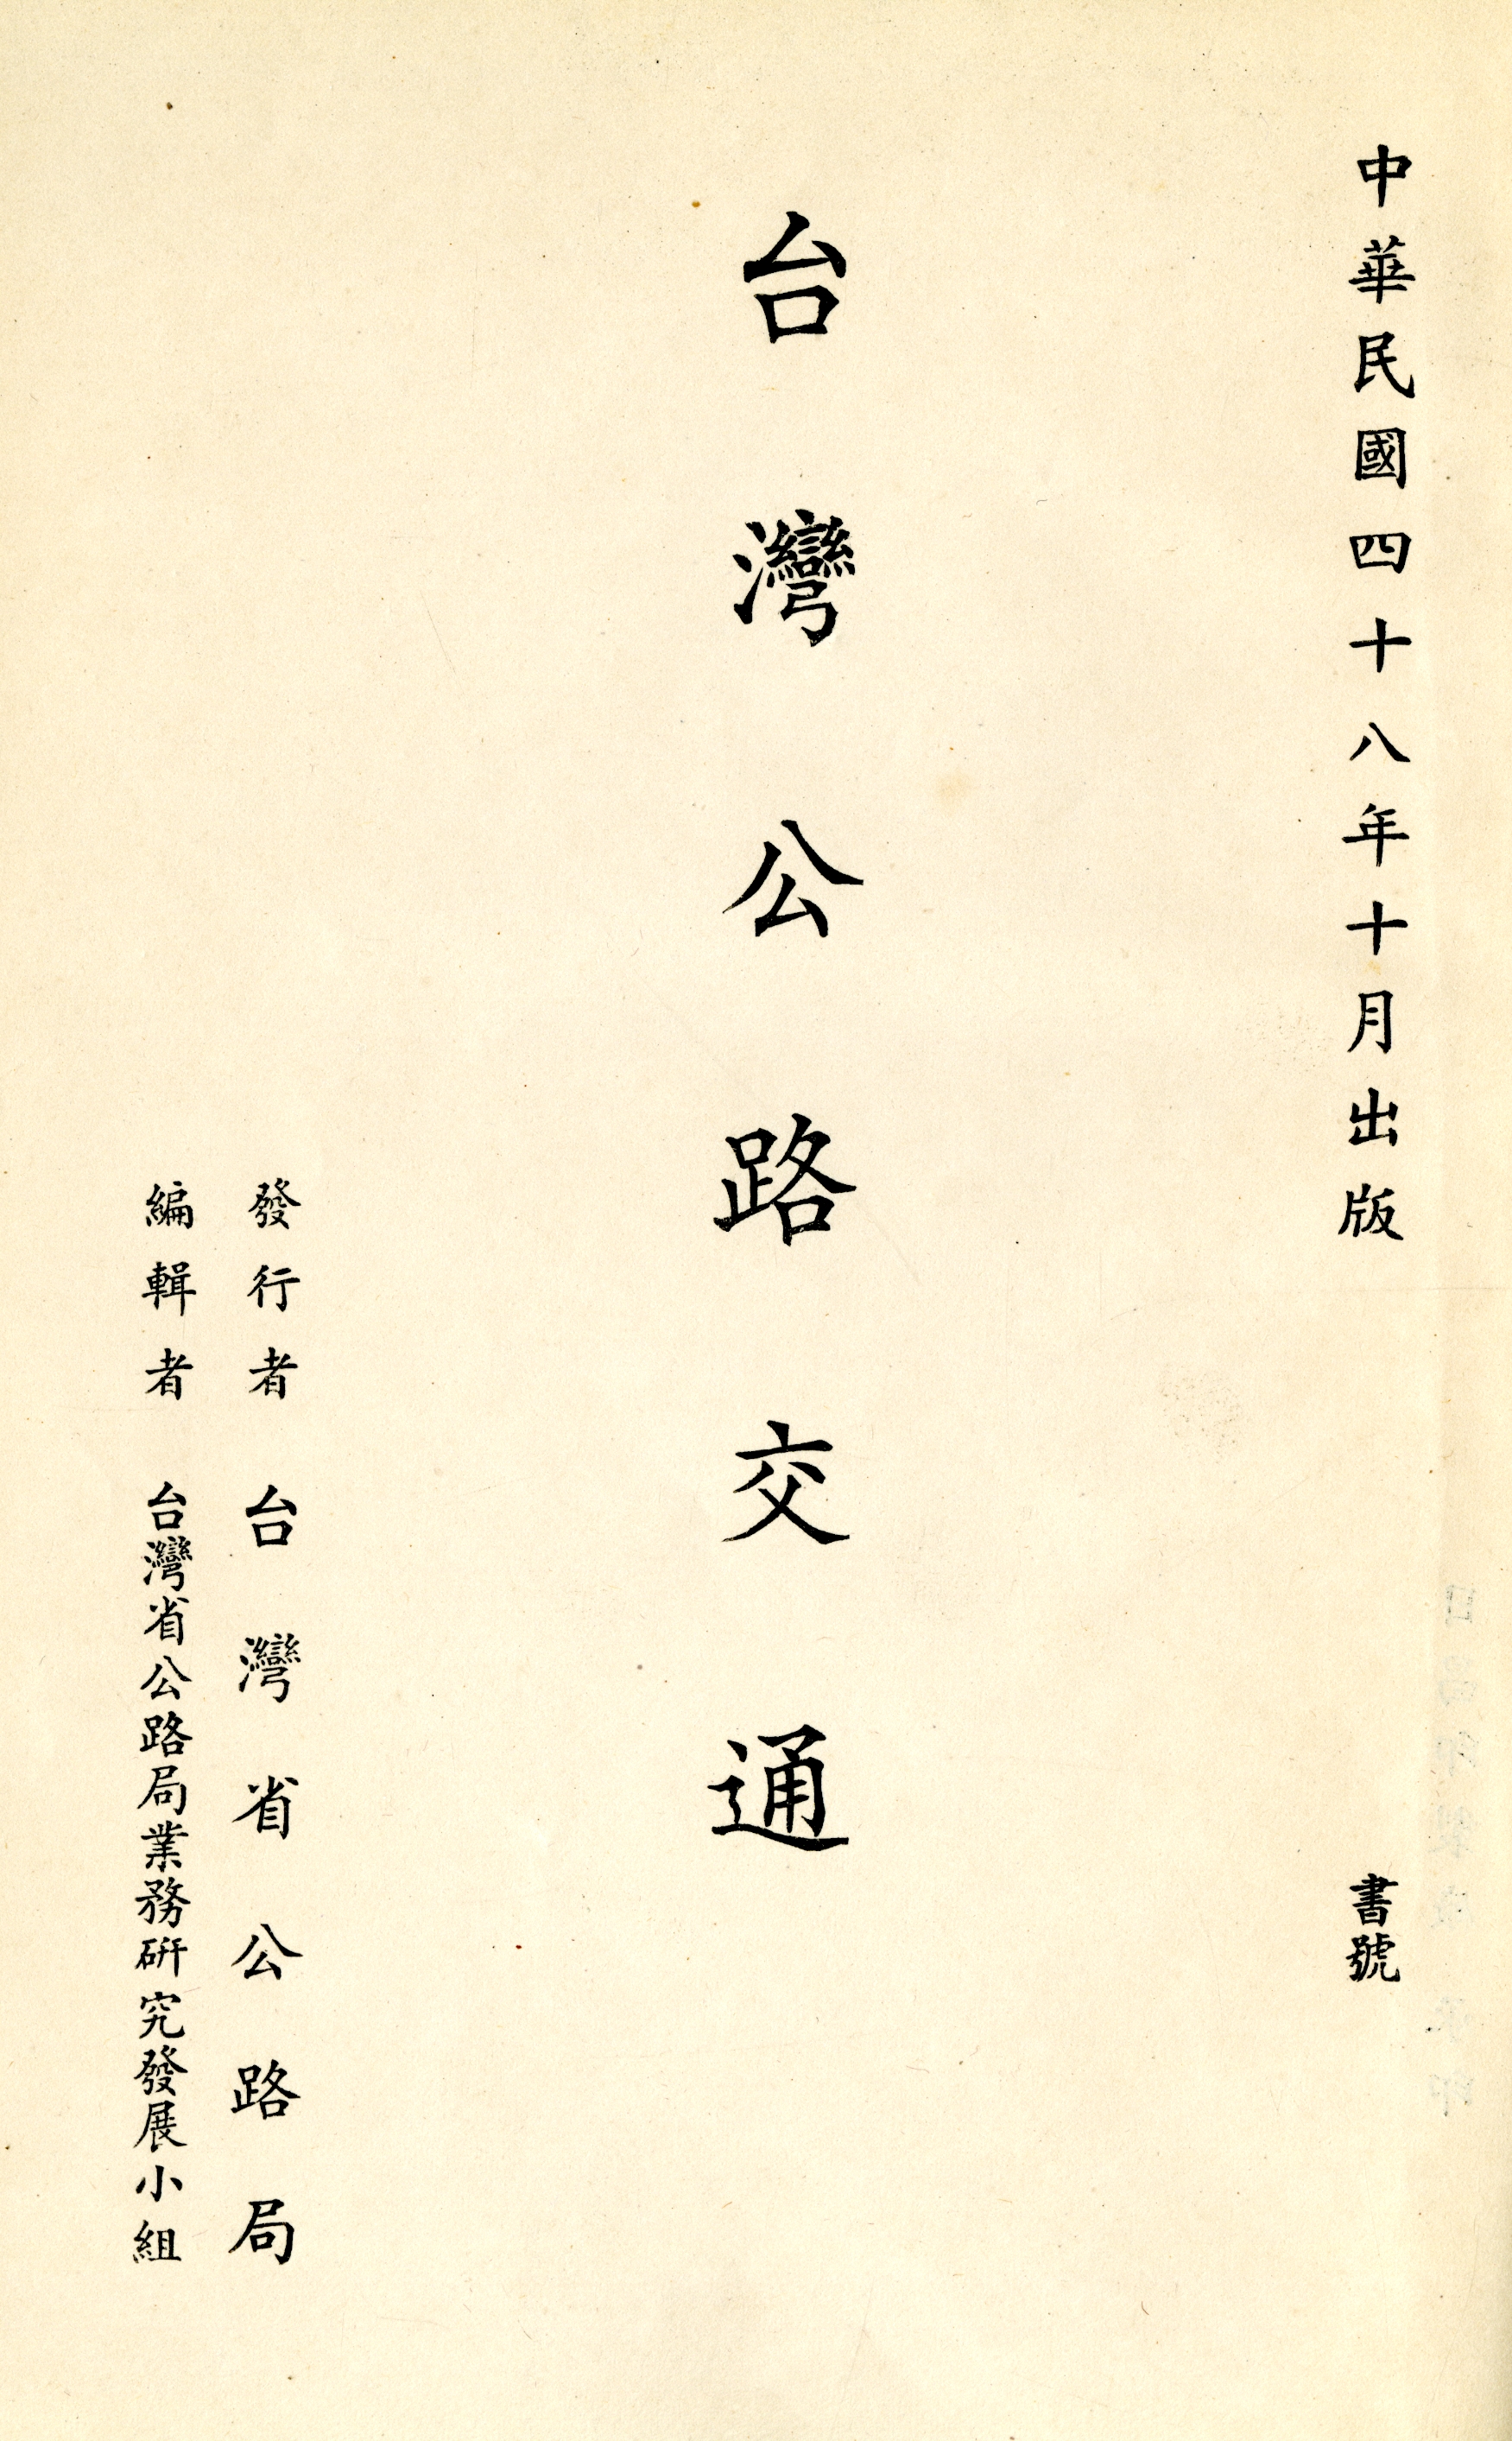 中華民國四十八年十月出版
書號
台灣公路交通
發行者 台灣省公路局
編輯者 台灣省公路局業務研究發展小組